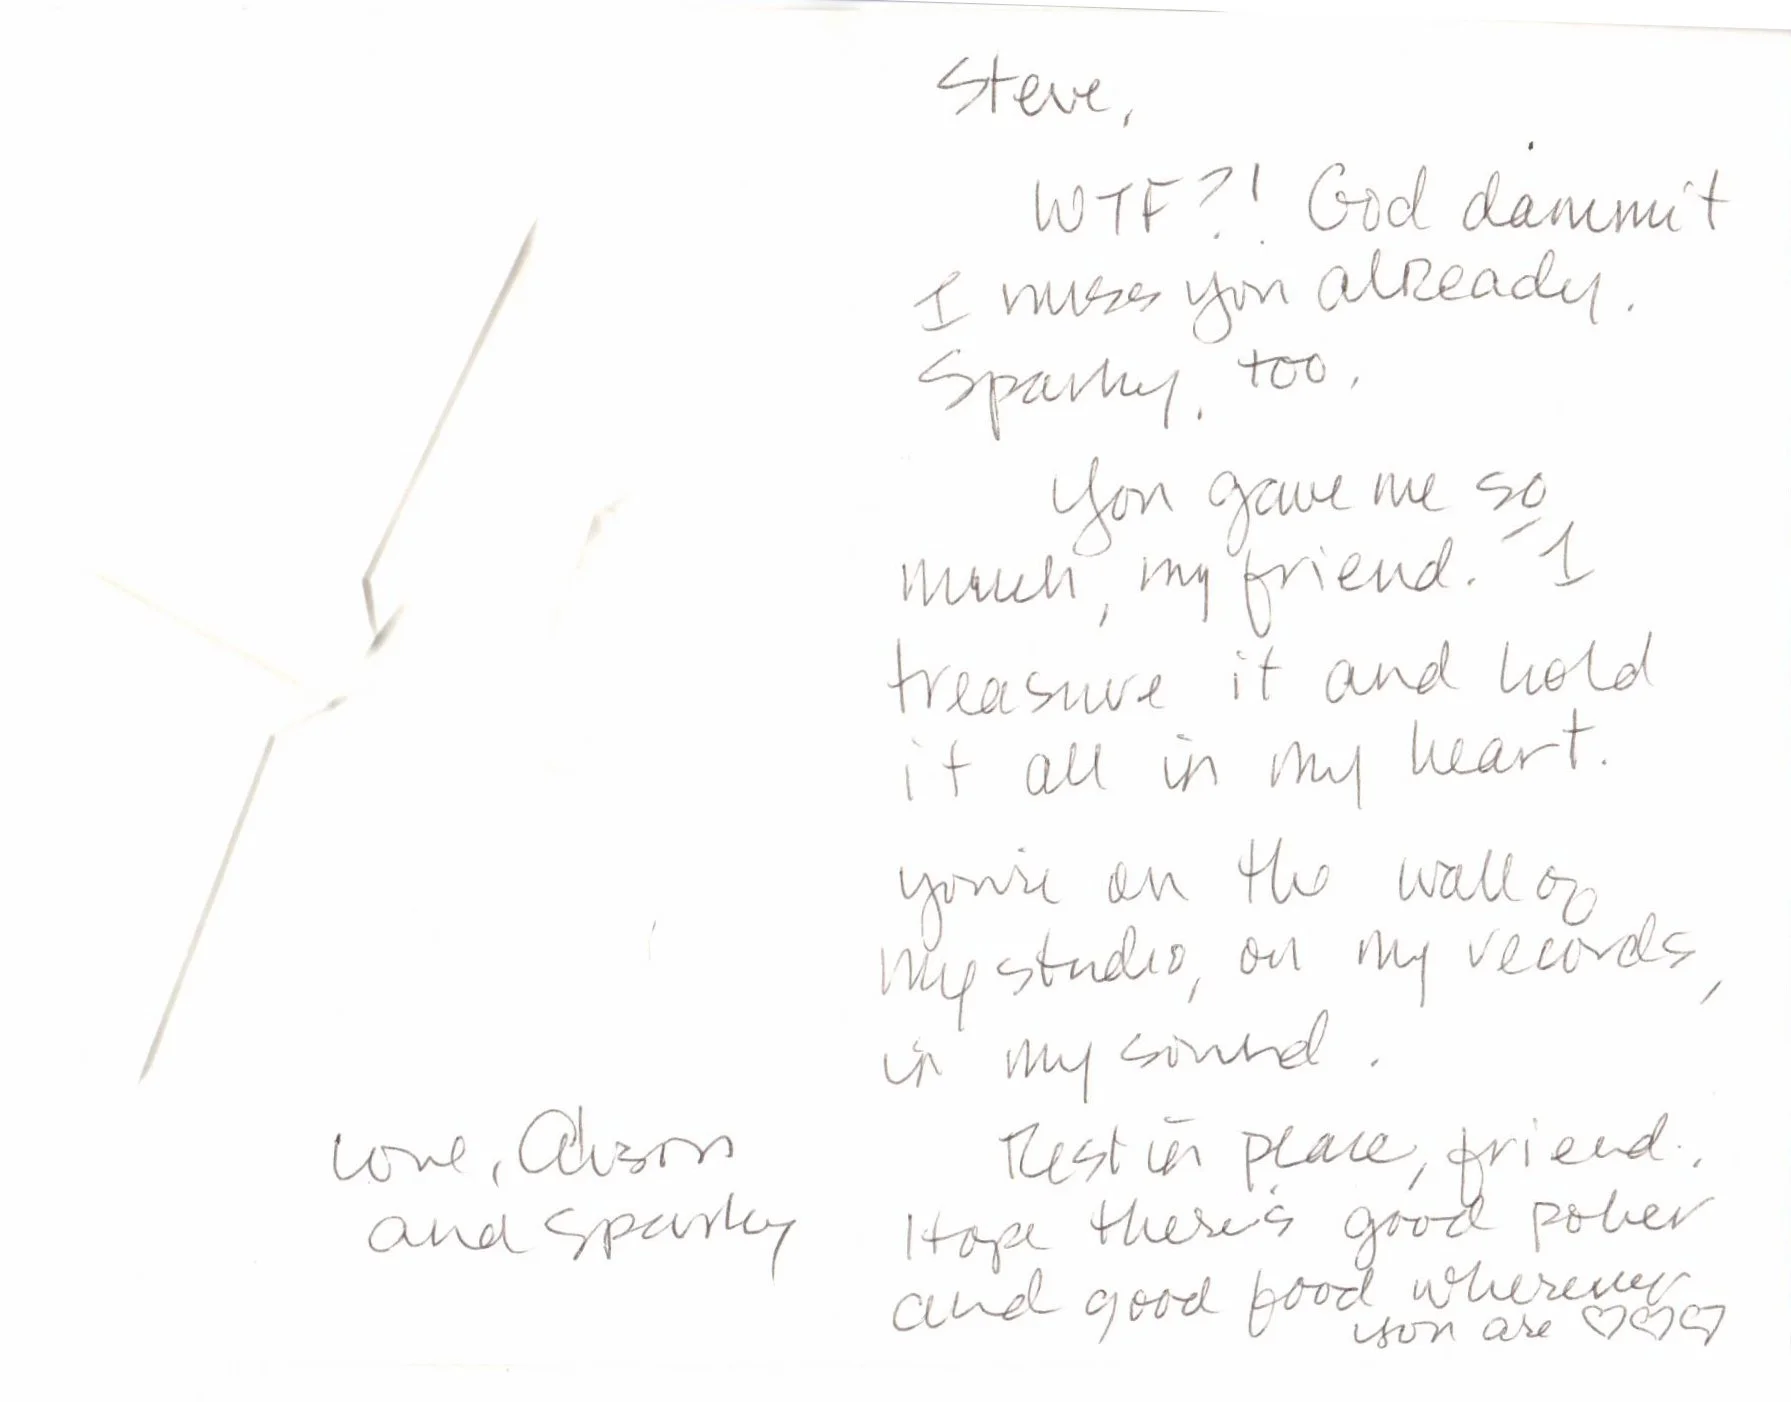 Steve,
WTF?! God dammit
I miss you alReady.
Sparky, too.
You gave me so
much, my friend. I
treasure it and hold
it all in my heart.
you're on the wall of
my studio, on my records,
in my sound.
Rest in peace, friend.
Hope there's good poker
and good food wherever
you are ♡♡♡
Love, Alison
and Sparky